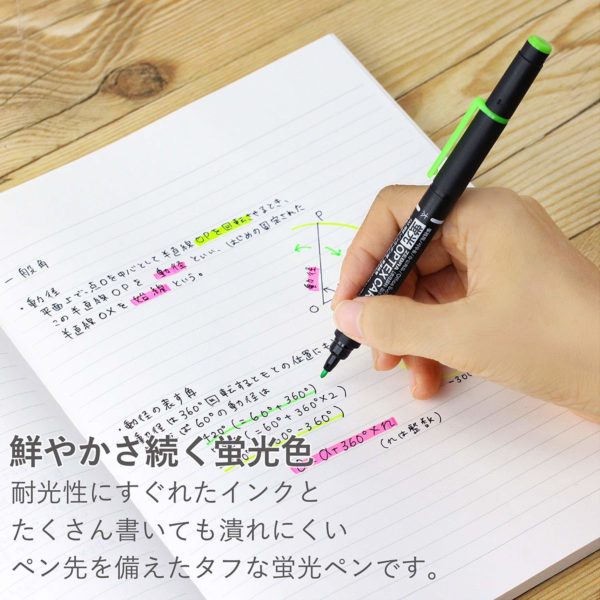 一般角
・動径
平面上で、点Oを中心として半直線OPを回転させるとき、
この半直線OPを動径といい、はじめの固定された
半直線OXを始線という。
P
動径
O
・動径の表す角
動径は360°回転するともとの位置に
は60°の動径は
420°(=60°+360°)
(=60°+360°×2)
60°-360°)
α+360°×n
(nは整数)
-300
太
蛍光 OPTEX CARE
鮮やかさ続く蛍光色
耐光性にすぐれたインクと
たくさん書いても潰れにくい
ペン先を備えたタフな蛍光ペンです。